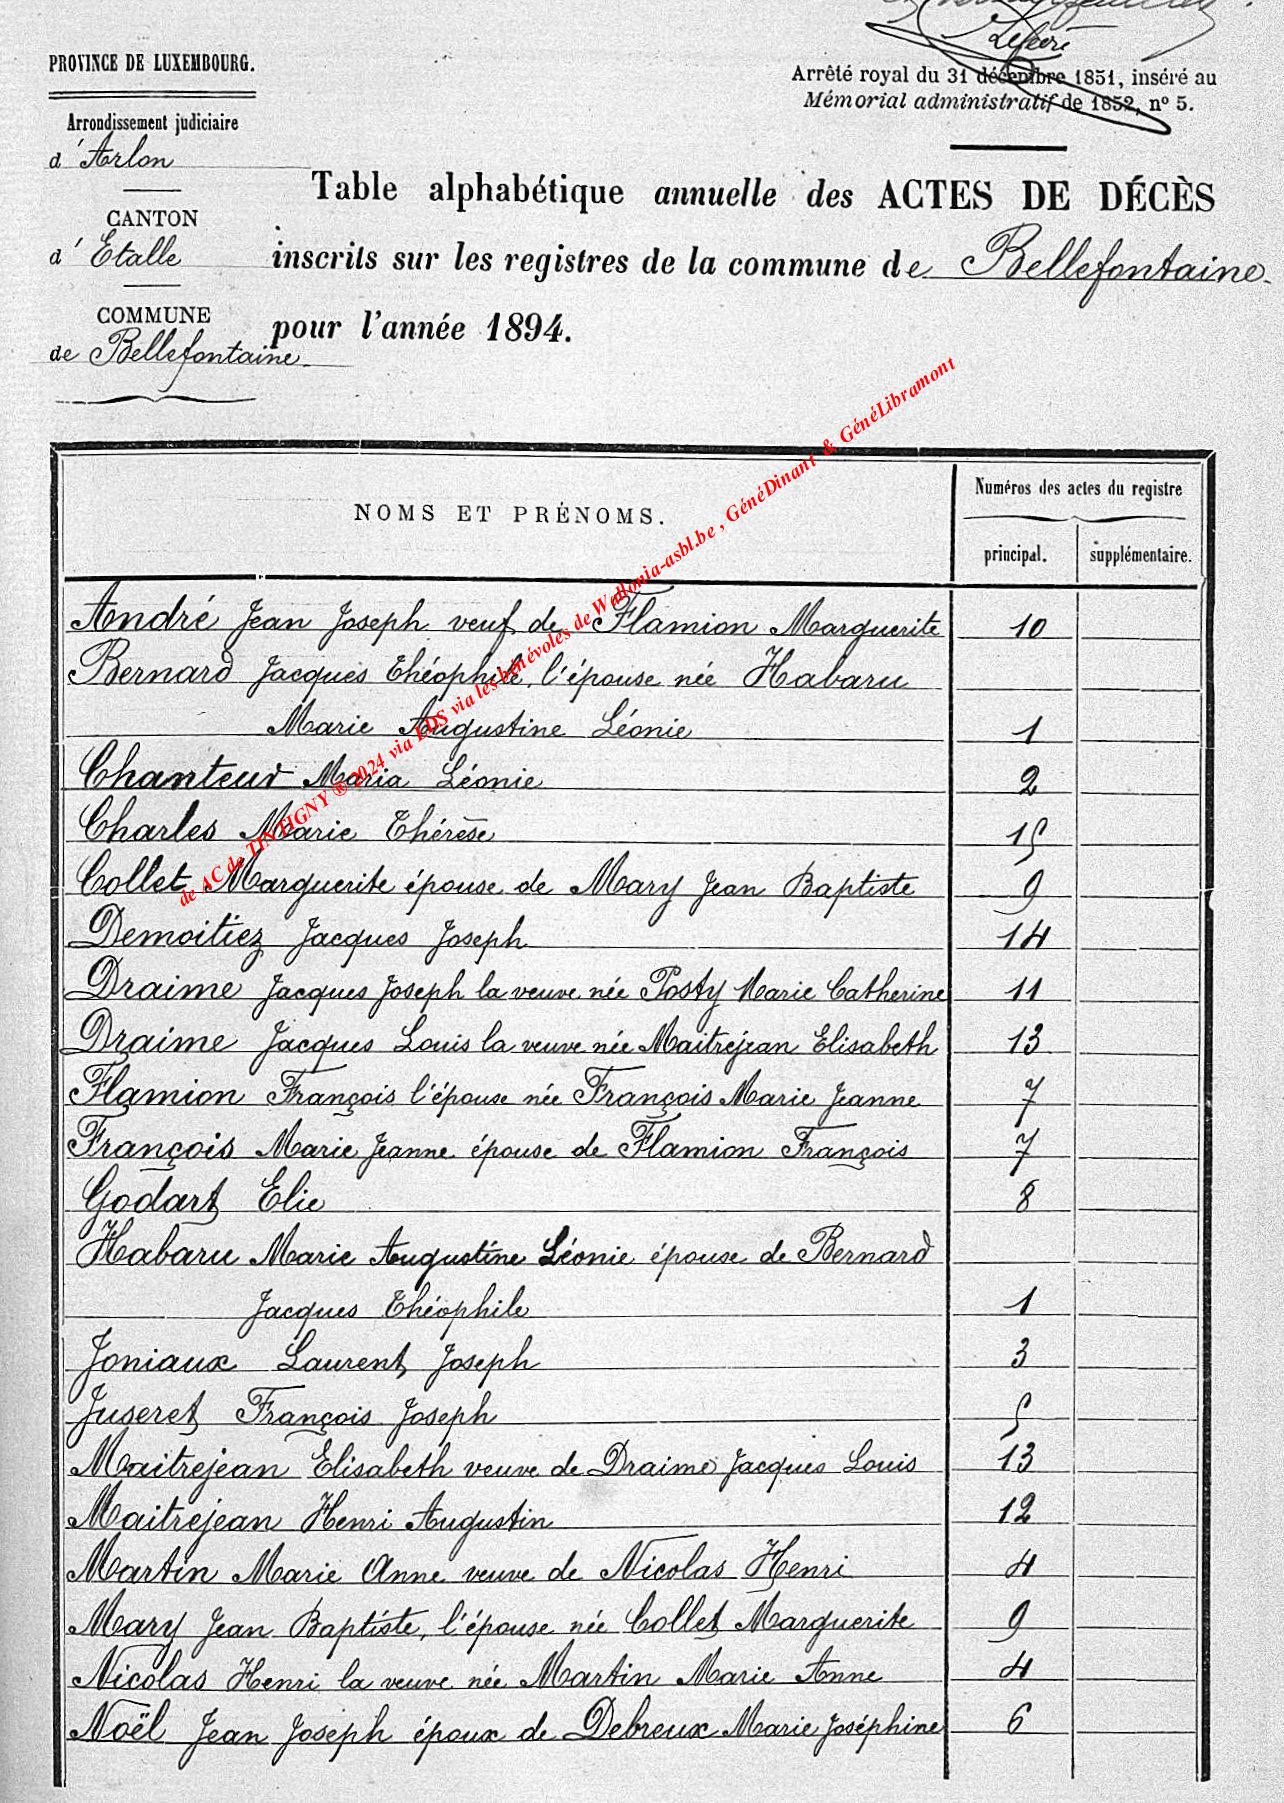 Lefèvre
PROVINCE DE LUXEMBOURG.
Arrêté royal du 31 décembre 1851, inséré au
Mémorial administratif de 1852, nº 5.
Arrondissement judiciaire
d'Arlon
CANTON
d'Etalle
COMMUNE
de Bellefontaine
Table alphabétique annuelle des ACTES DE DÉCÈS
inscrits sur les registres de la commune de Bellefontaine
pour l'année 1894.
de AC de TINTIGNY ® 2024 via FDS via les bénévoles de Wallonia-asbl.be , GénéDinant & GénéLibramont
NOMS ET PRÉNOMS.
Numéros des actes du registre
principal. supplémentaire.
André Jean Joseph veuf de Flamion Marguerite 10
Bernard Jacques Théophile, l'épouse née Habaru
Marie Augustine Léonie 1
Chanteur Maria Léonie 2
Charles Marie Thérèse 15
Collet Marguerite épouse de Mary Jean Baptiste 9
Demoitiez Jacques Joseph 14
Draime Jacques Joseph la veuve née Posty Marie Catherine 11
Draime Jacques Louis la veuve née Maitrejean Elisabeth 13
Flamion François l'épouse née François Marie Jeanne 7
François Marie Jeanne épouse de Flamion François 7
Godart Elie 8
Habaru Marie Augustine Léonie épouse de Bernard
Jacques Théophile 1
Joniaux Laurent Joseph 3
Juseret François Joseph 5
Maitrejean Elisabeth veuve de Draime Jacques Louis 13
Maitrejean Henri Augustin 12
Martin Marie Anne veuve de Nicolas Henri 4
Mary Jean Baptiste, l'épouse née Collet Marguerite 9
Nicolas Henri la veuve née Martin Marie Anne 4
Noël Jean Joseph époux de Debreux Marie Joséphine 6